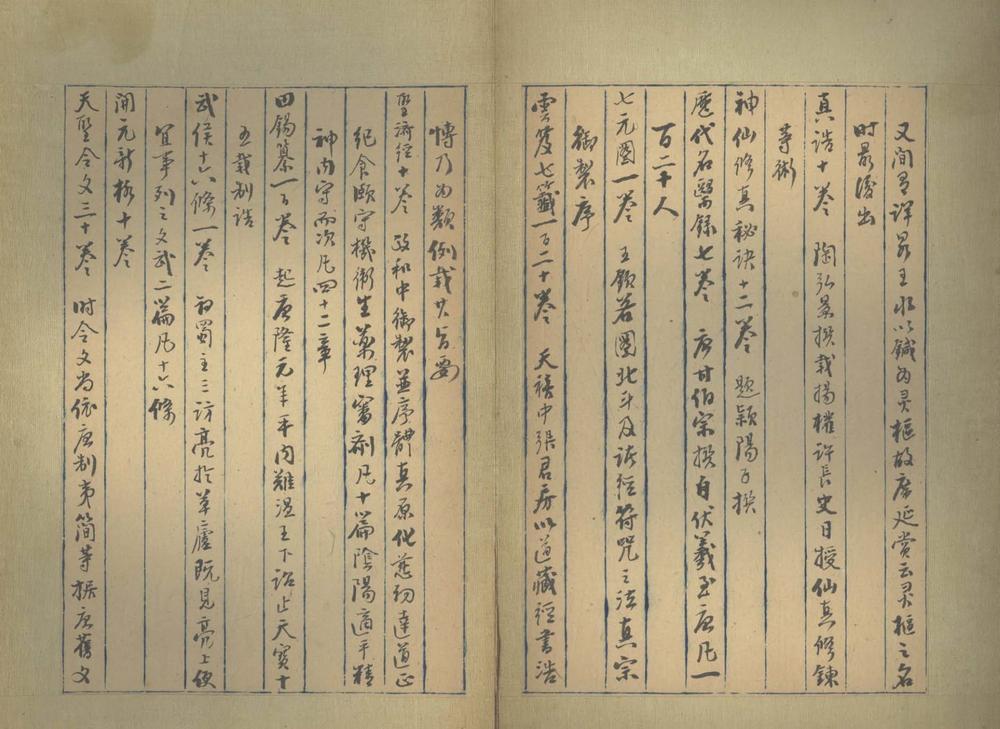 又間有詳是王氷以鍼為灵樞故席延賞云灵樞之名
時最後出
真誥十卷　陶弘景撰載楊權許長史日授仙真修鍊
等術
神仙修真秘訣十二卷　題潁陽子撰
歷代名醫錄七卷　唐甘伯宗撰自伏羲至唐凡一
百二十人
七元圖一卷　五顆若圖北斗及諸經符咒之法真宗
御製序
雲笈七籤一百二十卷　天禧中張君房以道藏經書浩
博乃為類例載其旨要
聖濟經十卷　政和中御製並序體真原化慈幼達道正
紀食頤守機衛生藥理審劑凡十篇陰陽適平精
神內守而次凡四十二章
四錫纂一百卷　起唐隆元年平內難溫王下詔止天寶十
五載制誥
武侯十六條一卷　初蜀主三訪亮於草廬既見亮上便
宜事列之文武二篇凡十六條
開元新格十卷
天聖令文三十卷　時令文尚依唐制夷簡等據唐舊文